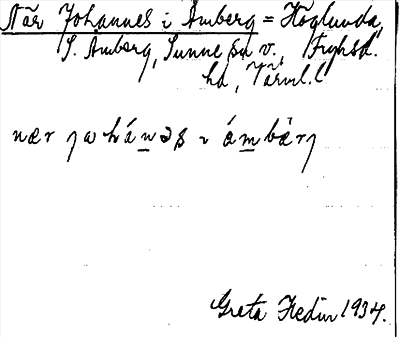 När Johannes i Amberg = Höglunda,
S. Amberg, Sunne sn v., Fryksd.
hd, Värml. l
Greta Hedin 1934.